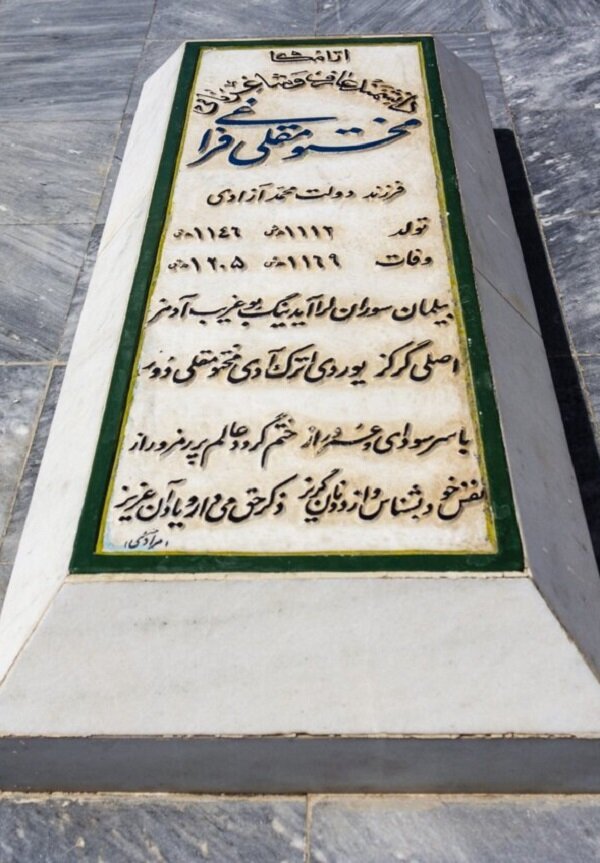 آرامگاه
دانشمند عارف و شاعر
مختومقلی فراغی
فرزند دولت محمد آزادی
تولد ۱۱۱۲ ه‍ش ۱۱٤٦ ه‍ق
وفات ۱۱٦۹ ه‍ش ۱۲۰۵ ه‍ق
بیلمان سوران لرا آیدینگ بو غریب آدمنز
اصلی گرکز یوردی اترک آدی مختومقلی دور
با سر سودای و گردد عالم پر رمز و راز
نفس خود بشناس و از دونان گریز ذکر حق می دار و یاد آن عزیز